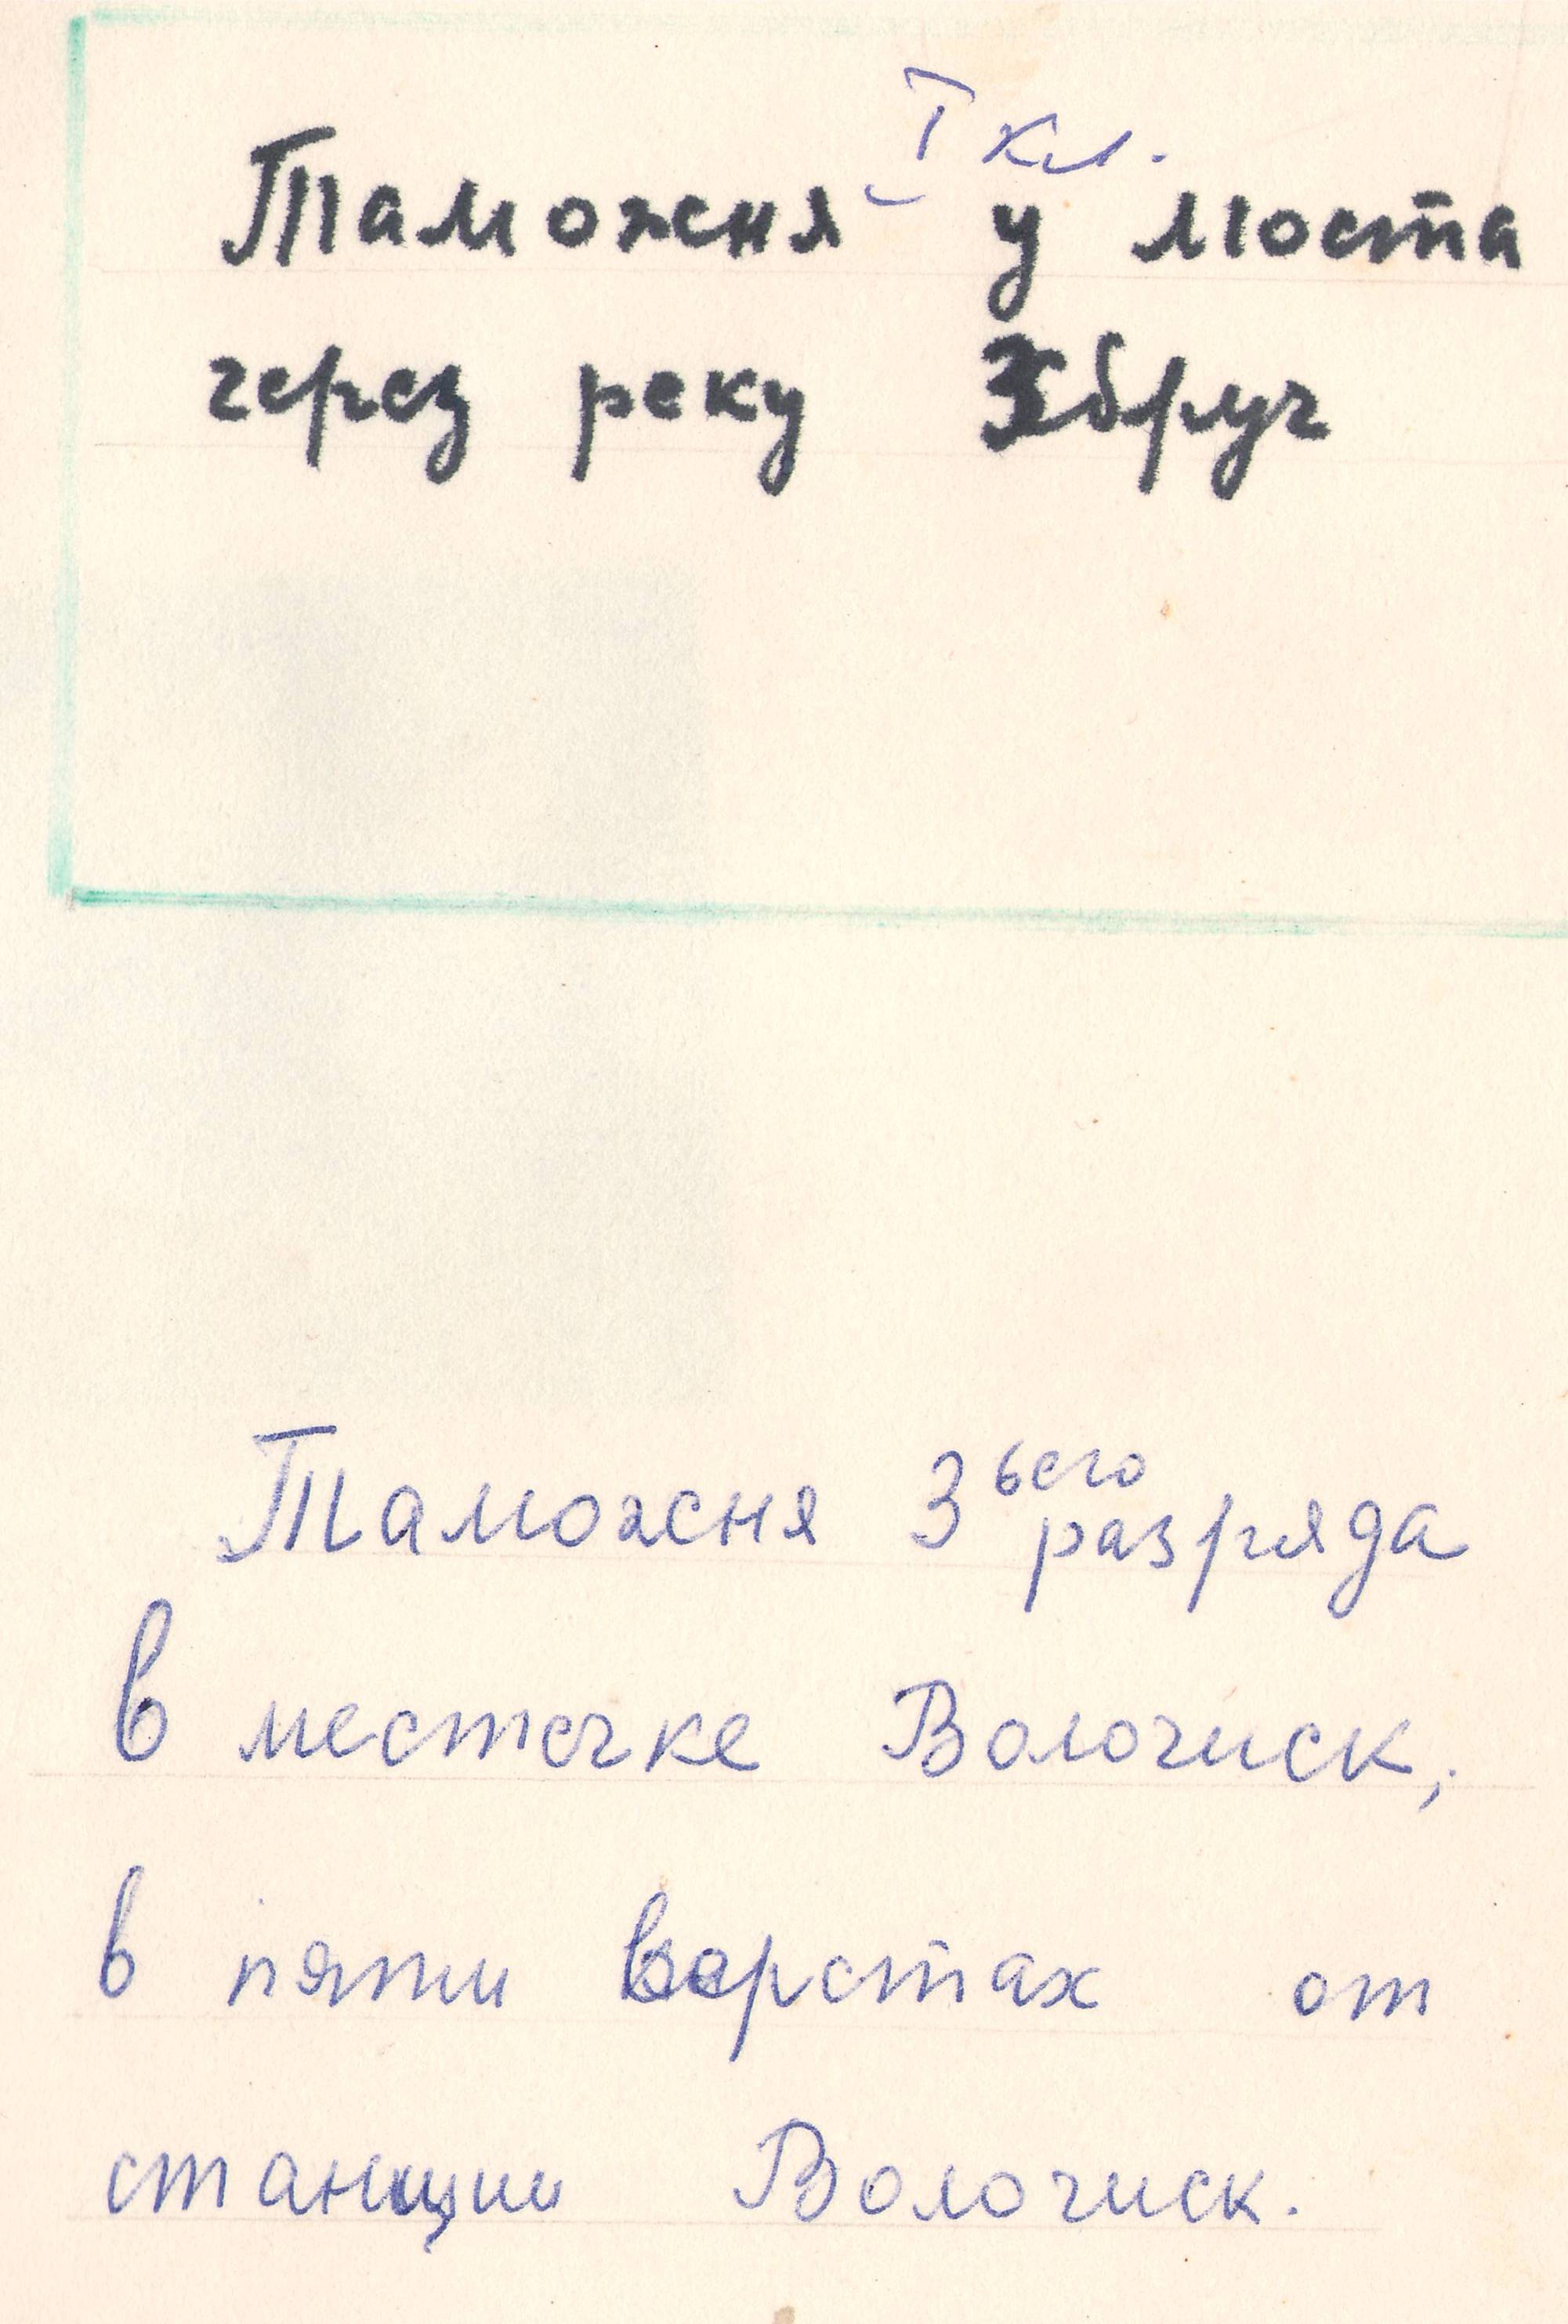 I кл.
Таможня у моста
через реку Збруч
Таможня 3ьего разряда
в местечке Волочиск,
в пяти верстах от
станции Волочиск.